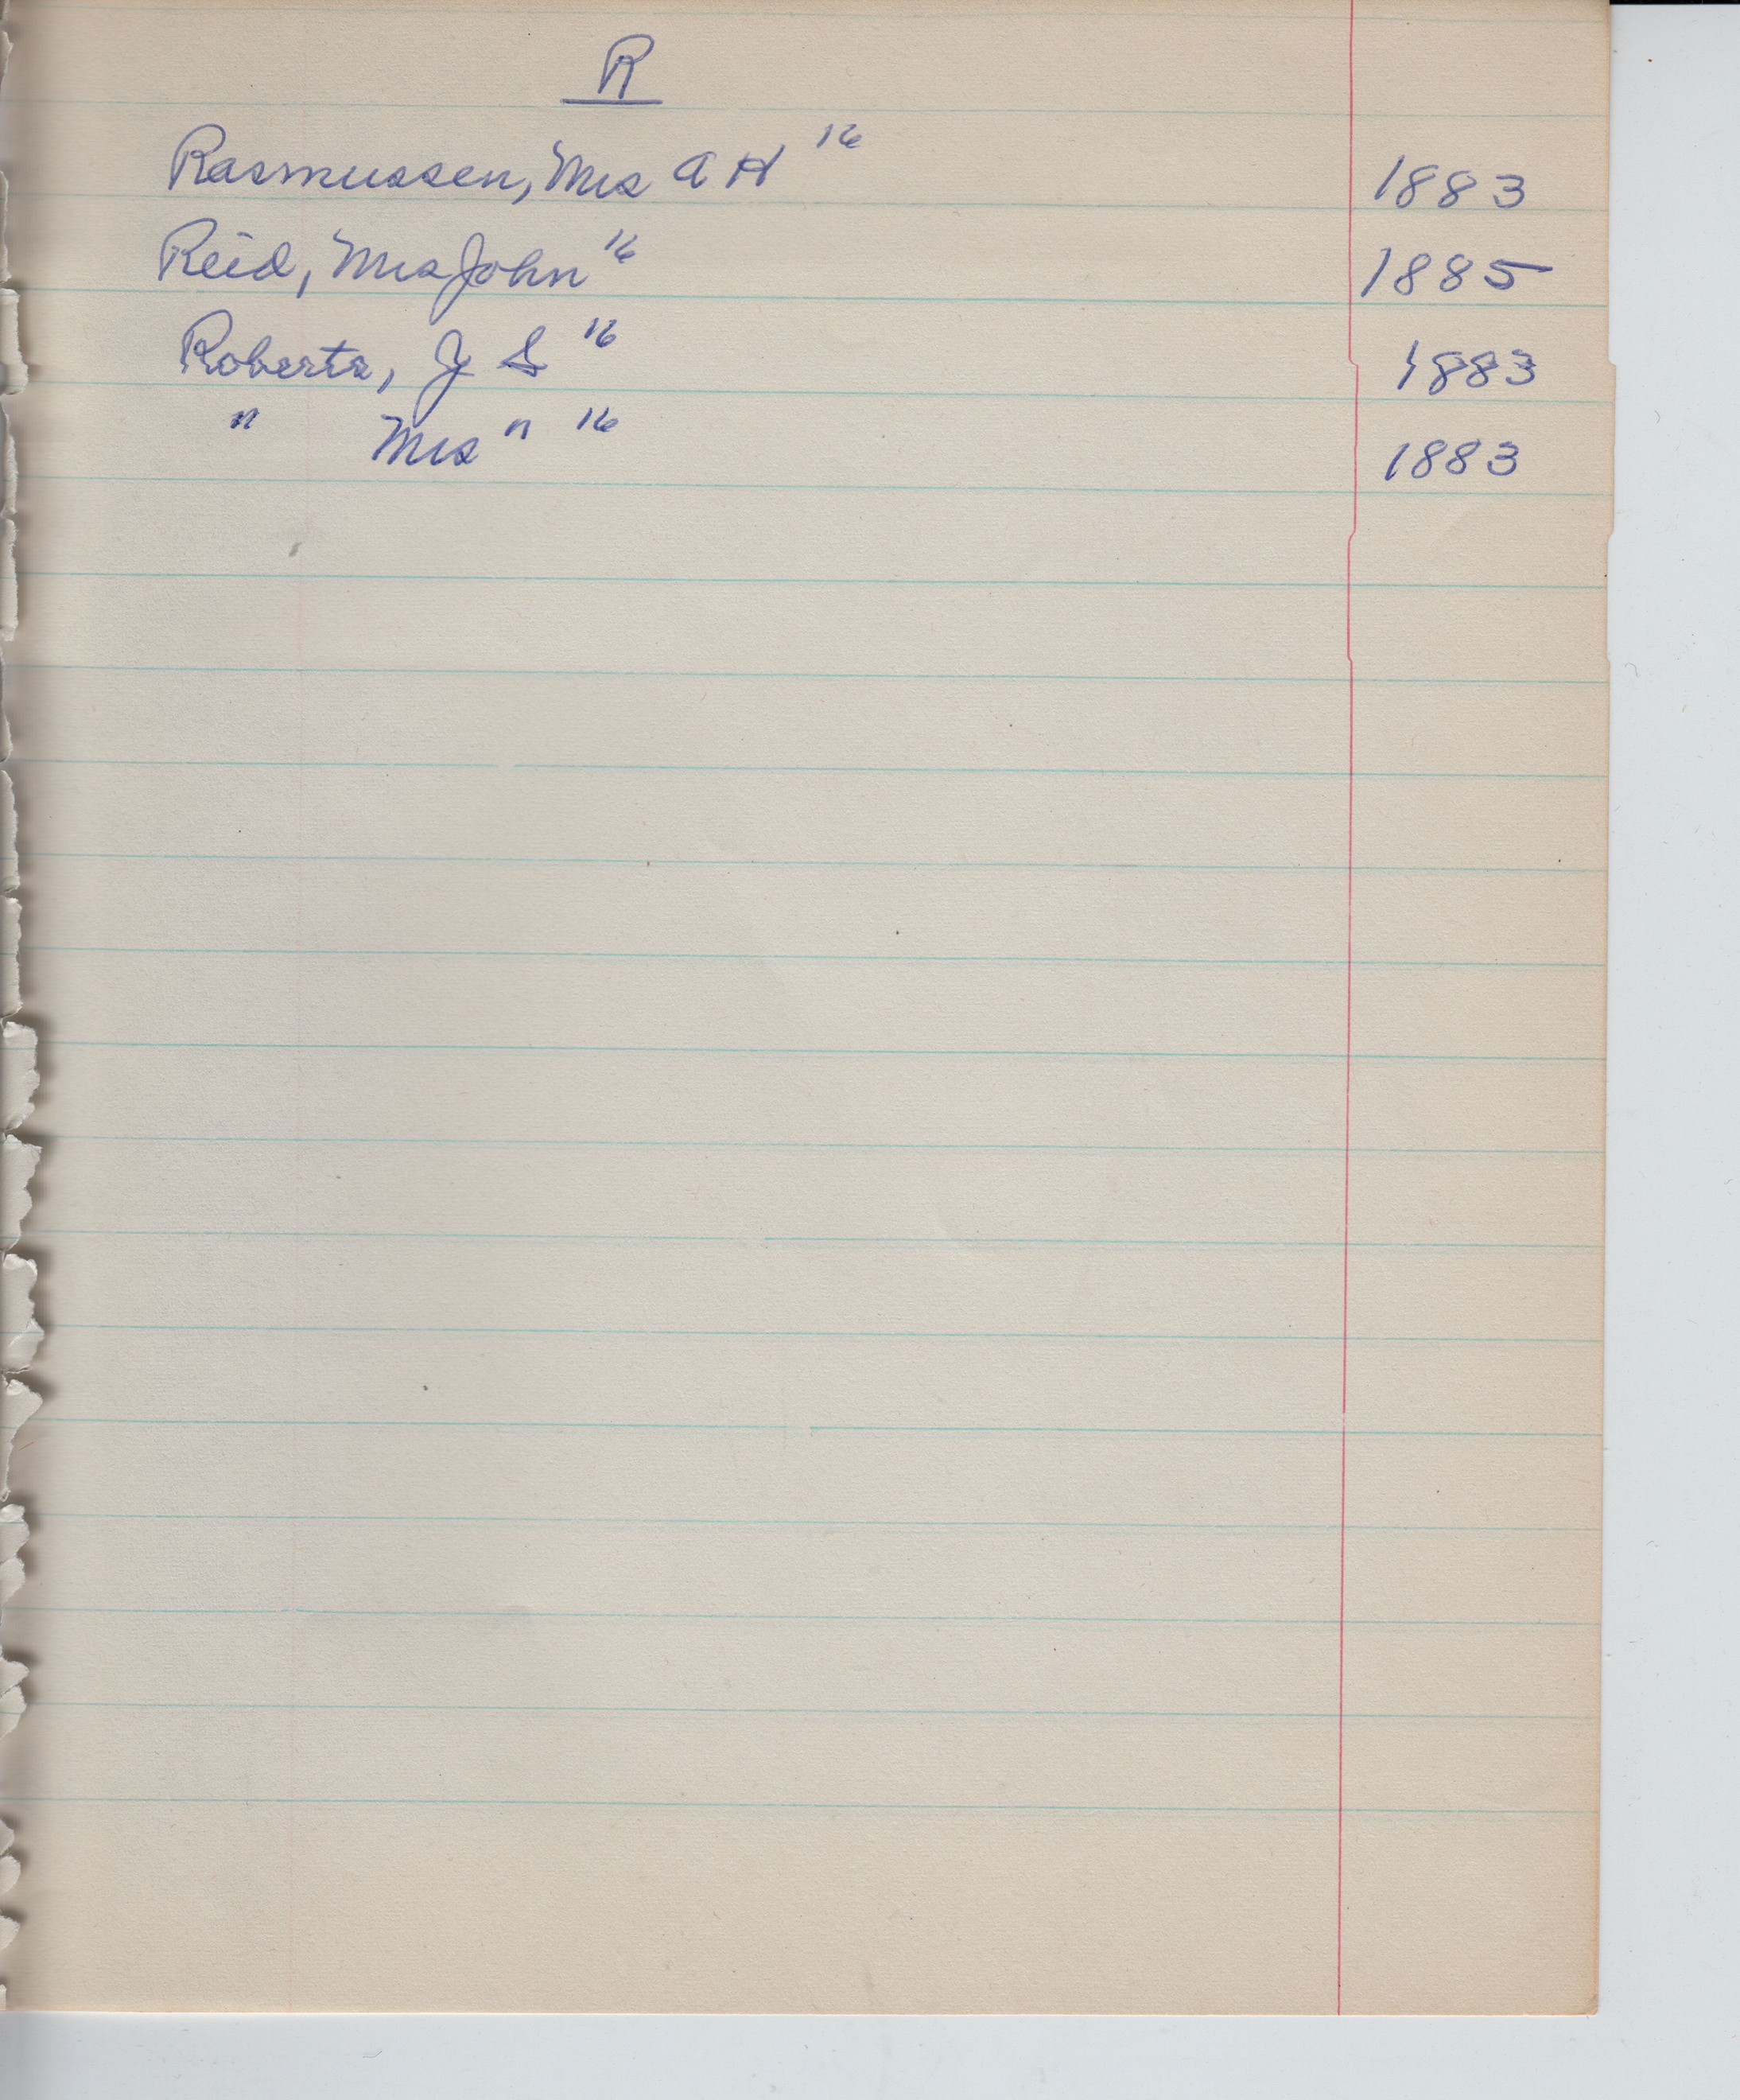 R
Rasmussen, Mrs A H 16 1883
Reid, Mrs John 16 1885
Roberts, J S 16 1883
" Mrs " 16 1883